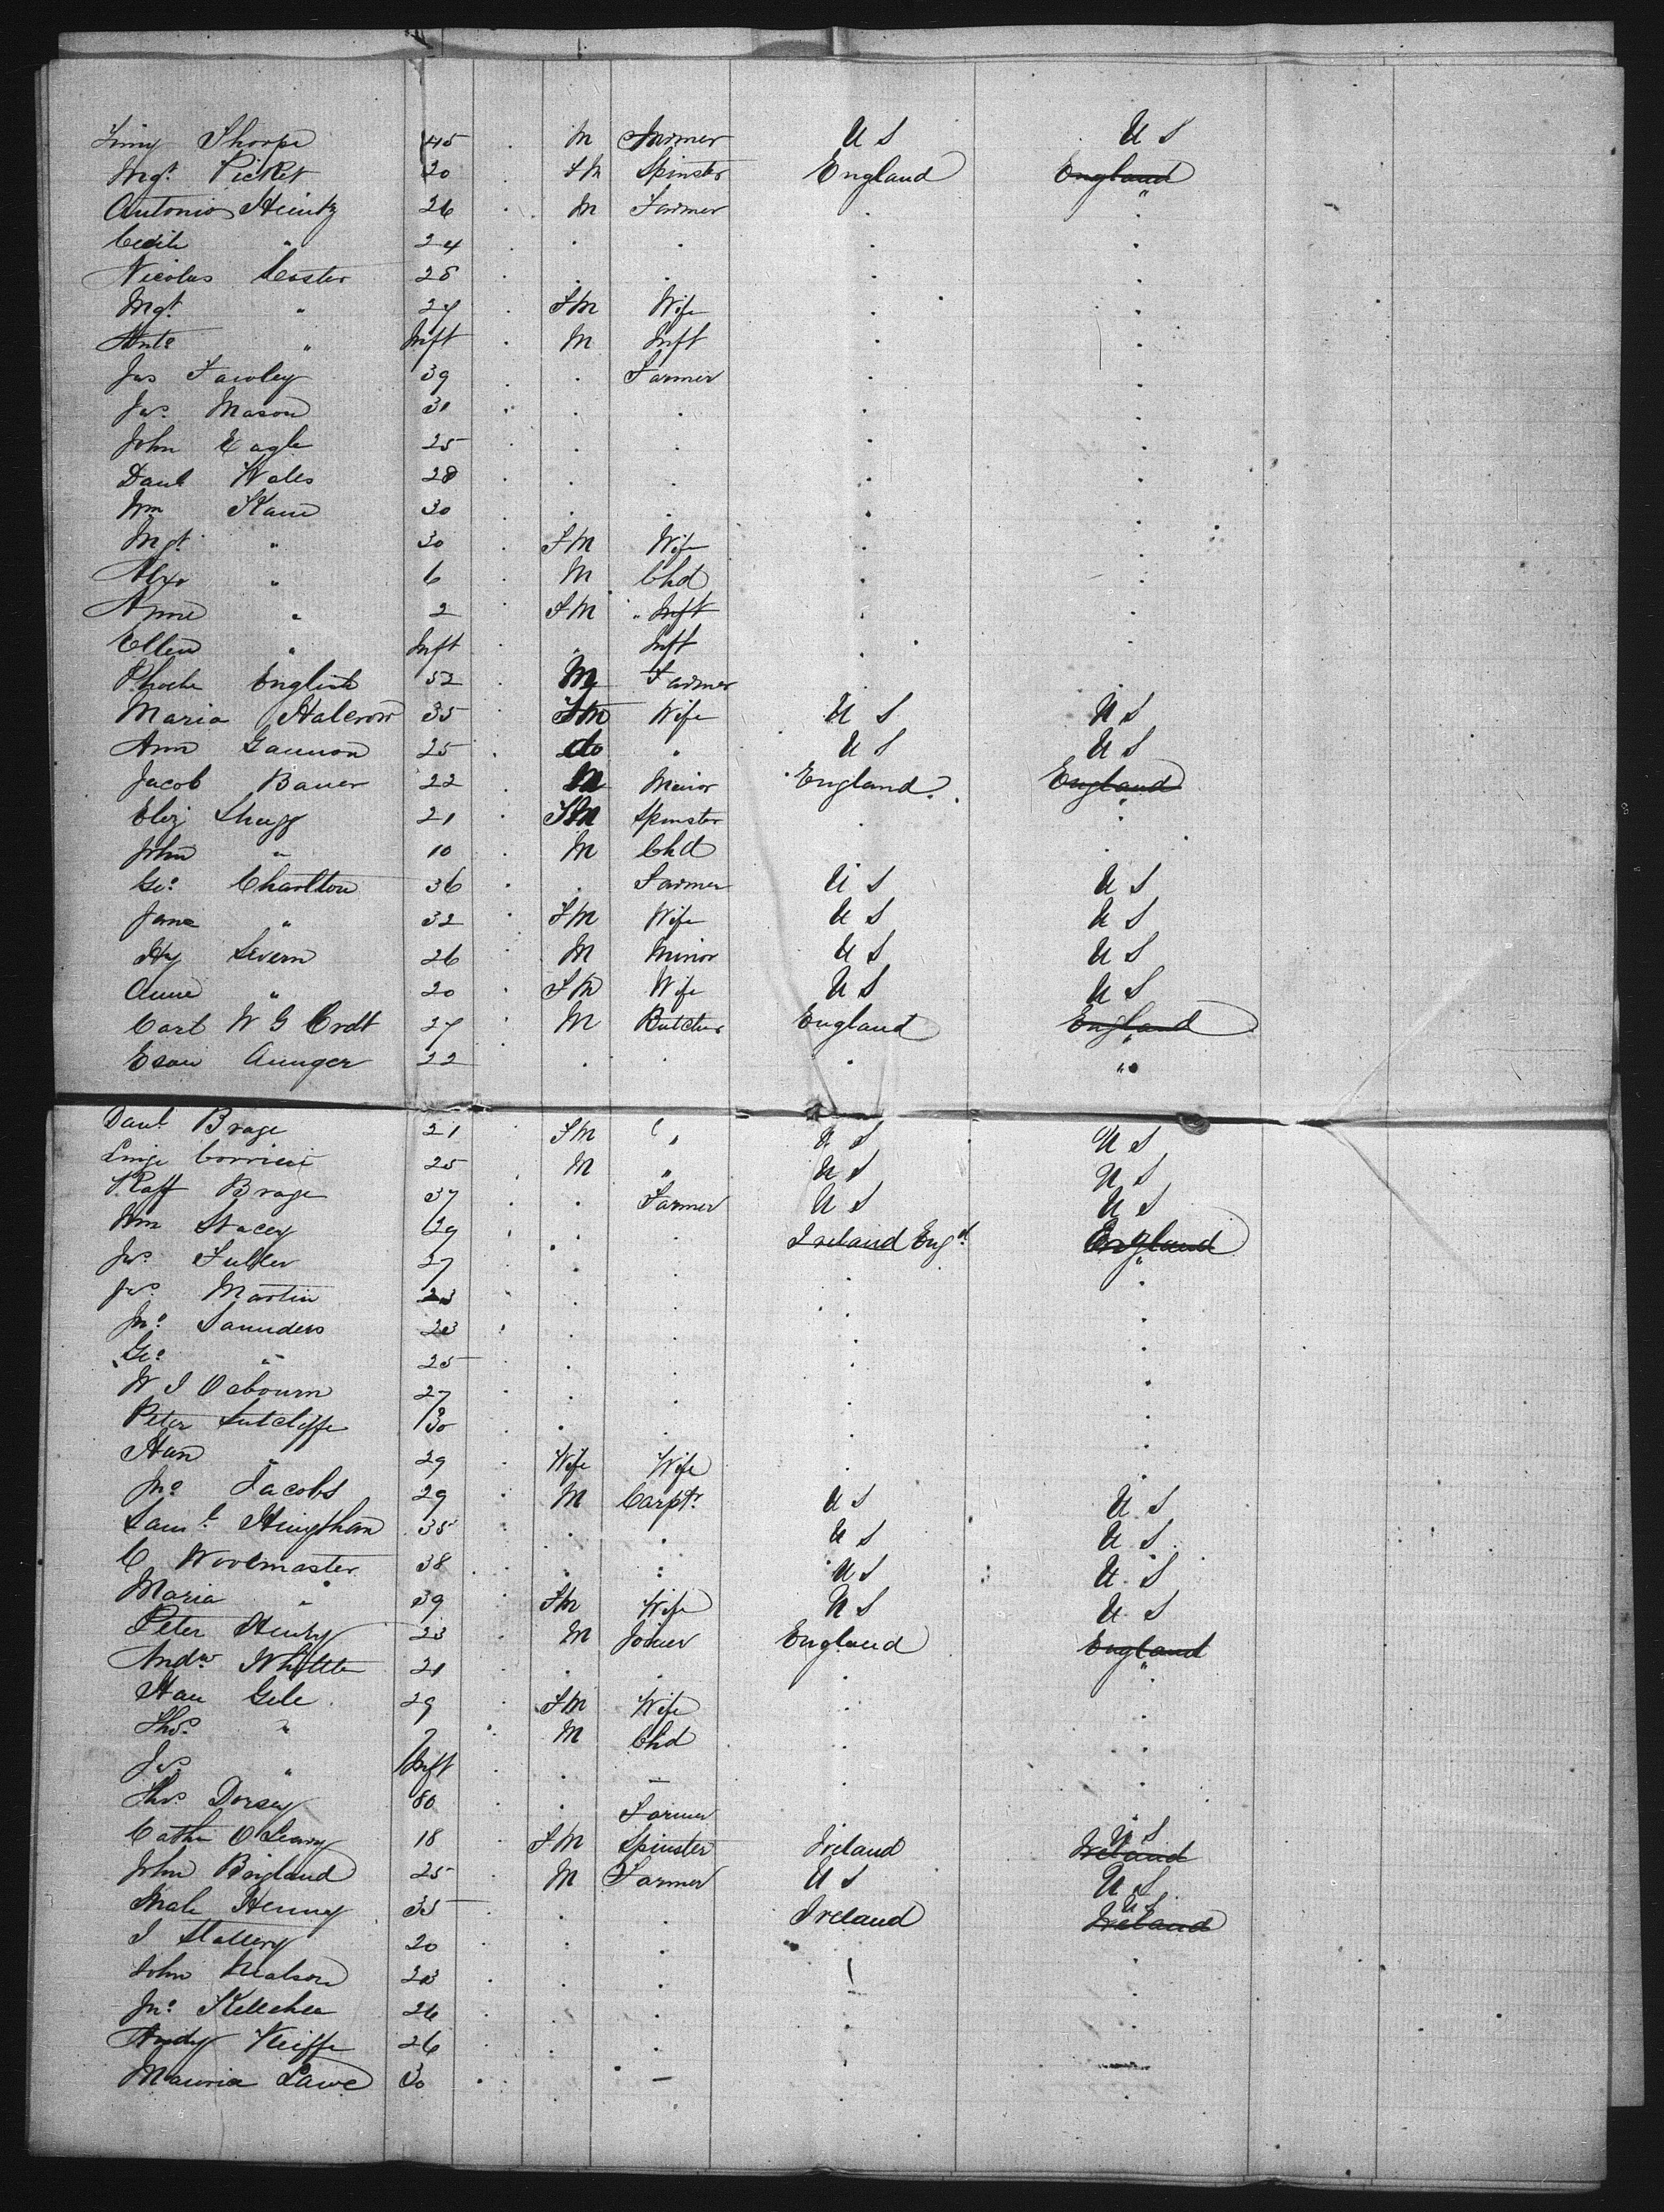 Thorpe 45 M Farmer U S U S
Mgt. Picket 20 F M Spinster England England "
Antonio Heintz 26 M Farmer
Cecile " 24
Nicolas Coster 28
Mgt. " 27 F M Wife
" Inft M Inft
Jas Fawley 39 Farmer
Jas. Mason 31
John Eagle 25
Danl Wales 28
Wm Kane 30
Mgt. " 30 F M Wife
Alexr " 6 M Chd
Anne " 2 F M " Inft
Ellen " Inft Inft
Phoebe English 52 M Farmer
Maria Halcrow 35 F M Wife U S U S
Ann Gannon 25 do " U S U S
Jacob Bauer 22 M Minor England England "
Eliz 21 F M Spinster
John " 10 M Chd
Geo. Charlton 36 Farmer U S U S
Jane " 32 F M Wife U S U S
Hy Severn 26 M Minor U S U S
Anne " 20 F M Wife U S U S
Carl W G Erdt 27 M Butcher England England "
Esau Aunger 22 "
Danl. Brage 21 F M " U S U S
25 M " U S U S
Raff Brage 37 Farmer U S U S
Wm Stacey 29 Ireland Engd. England "
Jas. Fuller 27
Jas. Martin 23
Jno. Saunders 23
Geo. " 25
W J Osbourn 27
Peter Sutcliffe 30
Han " 29 Wife Wife
Jno. Jacobs 29 M Carptr. U S U S
Saml. Hingham 35 U S U S
C Woolmaster 38 U S U S
Maria " 39 F M Wife U S U S
Peter Henry 23 M Joiner England England "
Andw. Whittle 21
Han Gele 29 F M Wife
Thos. " 7 M Chd
Jas. " Inft
Thos. Dorsey 80 Farmer
Cathe OLeary 18 F M Spinster Ireland Ireland U S
John Bingland 25 M Farmer U S U S
Henney 35 Ireland Ireland U S
J Slattery 20
John Nealson 23
Jno. Kelleher 26
Andy Keiffe 26
Mauria Lawe 30